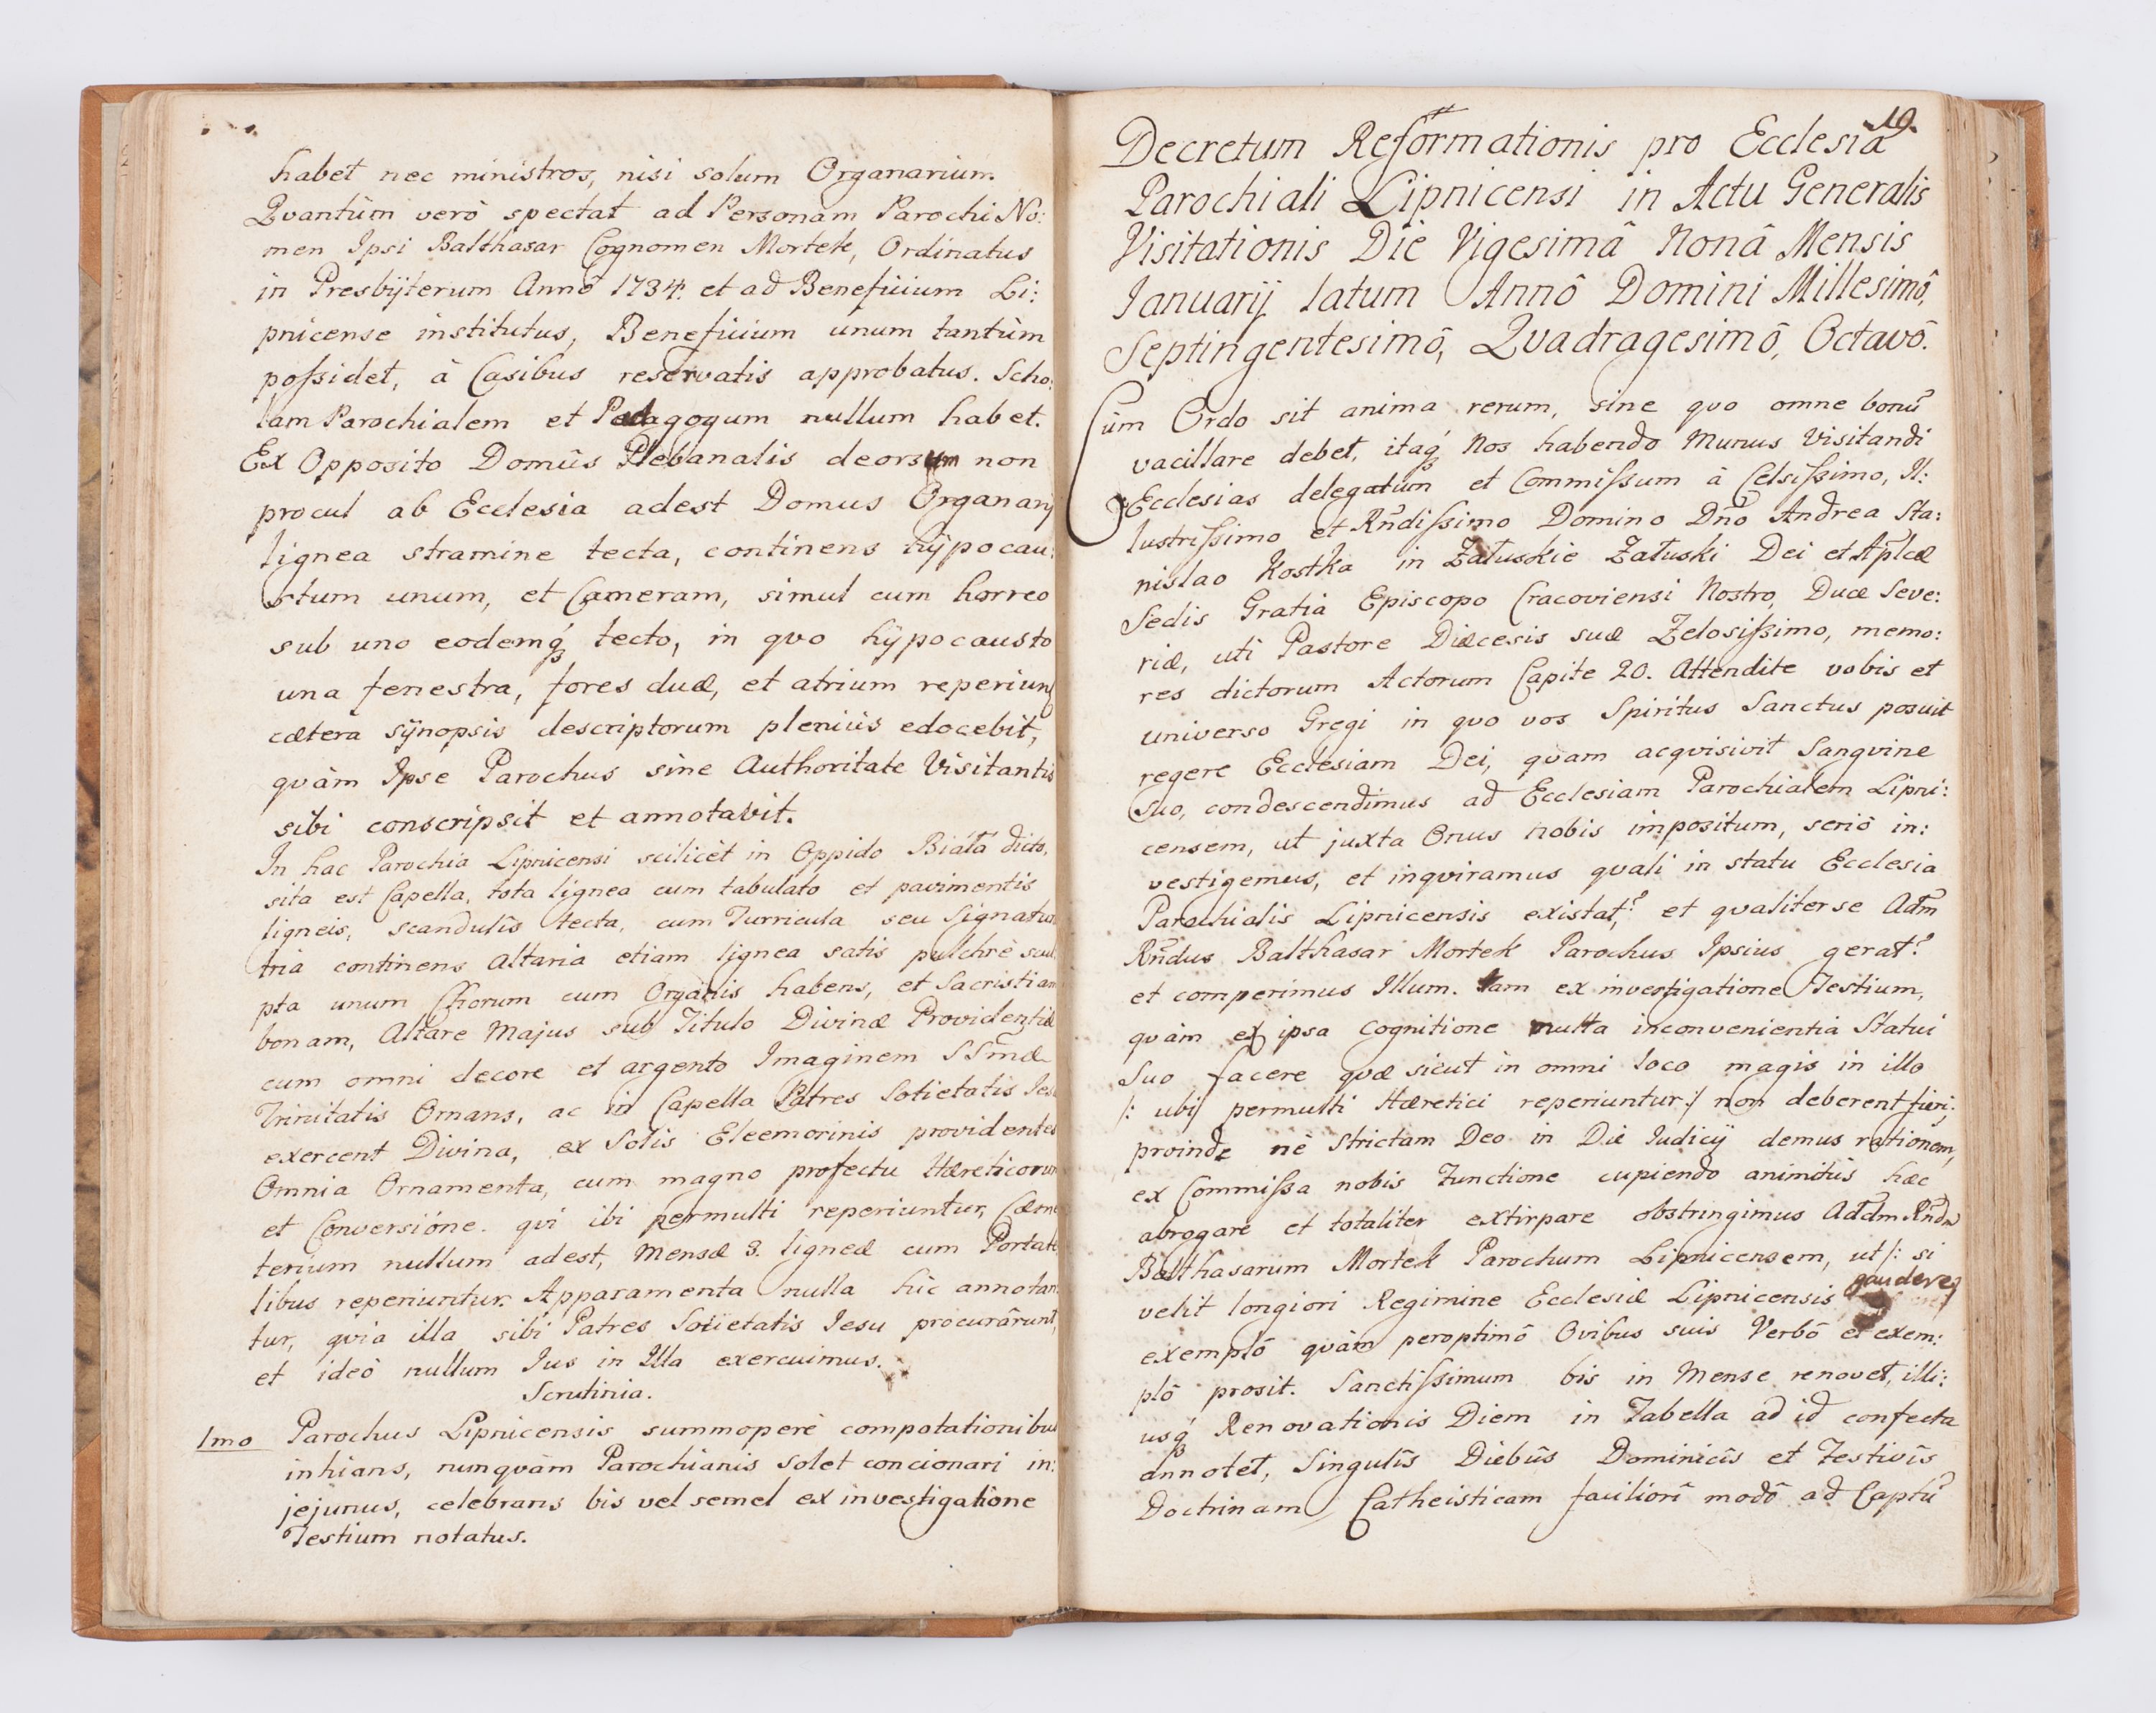 habet nec ministros, nisi solum Organarium.
Qvantùm verò spectat ad Personam Parochi No:
men Ipsi Balthasar Cognomen Mortek, Ordinatus
in Presbÿterum Annô 1734. et ad Beneficium Li:
pnicense institutus, Beneficium unum tantùm
poſsidet, à Casibus reservatis approbatus. Scho:
lam Parochialem et Pedagogum nullum habet.
Ex Opposito Domûs Plebanalis deorsum non
procul ab Ecclesia adest Domus Organarij
lignea stramine tecta, continens hÿpocau:
stum unum, et Cameram, simul cum horreo
sub uno eodemq́ tecto, in qvo hÿpocausto
una fenestra, fores duæ, et atrium reperiunt
cætera sÿnopsis descriptorum pleniùs edocebit,
qvàm Ipse Parochus sine Authoritate Visitantis
sibi conscripsit et annotavit.
In hac Parochia Lipnicensi scilicèt in Oppido Biáła dicto,
sita est Capella, tota lignea cum tabulato et pavimentis
ligneis, scandulîs tecta, cum Turricula seu Signatu
tria continens Altaria etiam lignea satis pulchrè scul
pta unum Chorum cum Organis habens, et Sacristiam
bonam, Altare Majus sub Titulo Divinæ Providentiæ
cum omni decore et argento Imaginem SSmæ
Trinitatis Ornans, ac in Capella Patres Societatis Jesu
exercent Divina, ex Solis Eleemorinis providentes
Omnia Ornamenta, cum magno profectu Hæreticorum
et Conversióne. qvi ibi permulti reperiuntur, Cæme
terium nullum adest, Mensæ 3. ligneæ cum Portati
libus reperiuntur. Apparamenta nulla hic annotan
tur, qvia illa sibi Patres Societatis Iesu procurârunt,
et ideò nullum Jus in Illa exercuimus.
Scrutinia.
1mo Parochus Lipnicensis summoperè compotationibus
inhians, nunqvàm Parochianis solet concionari in:
jejunus, celebrans bis vel semel ex investigatione
Testium notatus.
19.
Decretum Reformationis pro Ecclesiâ
Parochiali Lipnicensi in Actu Generalis
Visitationis Die Vigesimâ Nonâ Mensis
Ianuarij latum Annô Domini Millesimô,
Septingentesimô, Qvadragesimô, Octavô.
Cùm Ordo sit anima rerum, sine qvo omne bonũ
vacillare debet, itaq́ Nos habendo Munus Visitandi
Ecclesias delegatum et Commiſsum à Celsiſsimo, Il:
lustriſsimo et Rñdiſsimo Domino Dño Andrea Sta:
nislao Kostka in Załuskie Załuski Dei et Aplcæ
Sedis Gratiâ Episcopo Cracoviensi Nostro, Duce Seve:
riæ, uti Pastore Diæcesis suæ Zelosiſsimo, memo:
res dictorum Actorum Capite 20. Attendite vobis et
universo Gregi in qvo vos Spiritus Sanctus posuit
regere Ecclesiam Dei, qvam acqvisivit Sangvine
Suo, condescendimus ad Ecclesiam Parochialem Lipni:
censem, ut juxta Onus nobis impositum, seriò in:
vestigemus, et inqviramus qvali in statu Ecclesia
Parochialis Lipnicensis existat,? et qvaliter se Adm̃
Rñdus Balthasar Mortek Parochus Ipsius gerat?
et comperimus Illum. tam ex investigatione Testium,
qvàm ex ipsa cognitione multa inconvenientia Statui
Suo facere qvæ sicut in omni loco magis in illo
/: ubi permulti Hæretici reperiuntur:/ non deberent fieri,
proinde nè Strictam Deo in Die Iudicij demus rationem,
ex Commiſsa nobis Functione cupiendo animitùs hæc
abrogare et totaliter extirpare obstringimus Adm̃ Rñdũ
Balthasarum Mortek Parochum Lipnicensem, ut /: si
velit longiori Regimine Ecclesiæ Lipnicensis gaudere:/
exemplô qvàm peroptimô Ovibus suis Verbô et exem:
plô prosit. Sanctiſsimum bis in Mense renovet, illi:
usq́ Renovationis Diem in Tabella ad id confecta
annotet, Singulîs Diebûs Dominicîs et Festivîs
Doctrinam Catheisticam faciliorî modô ad Captũ